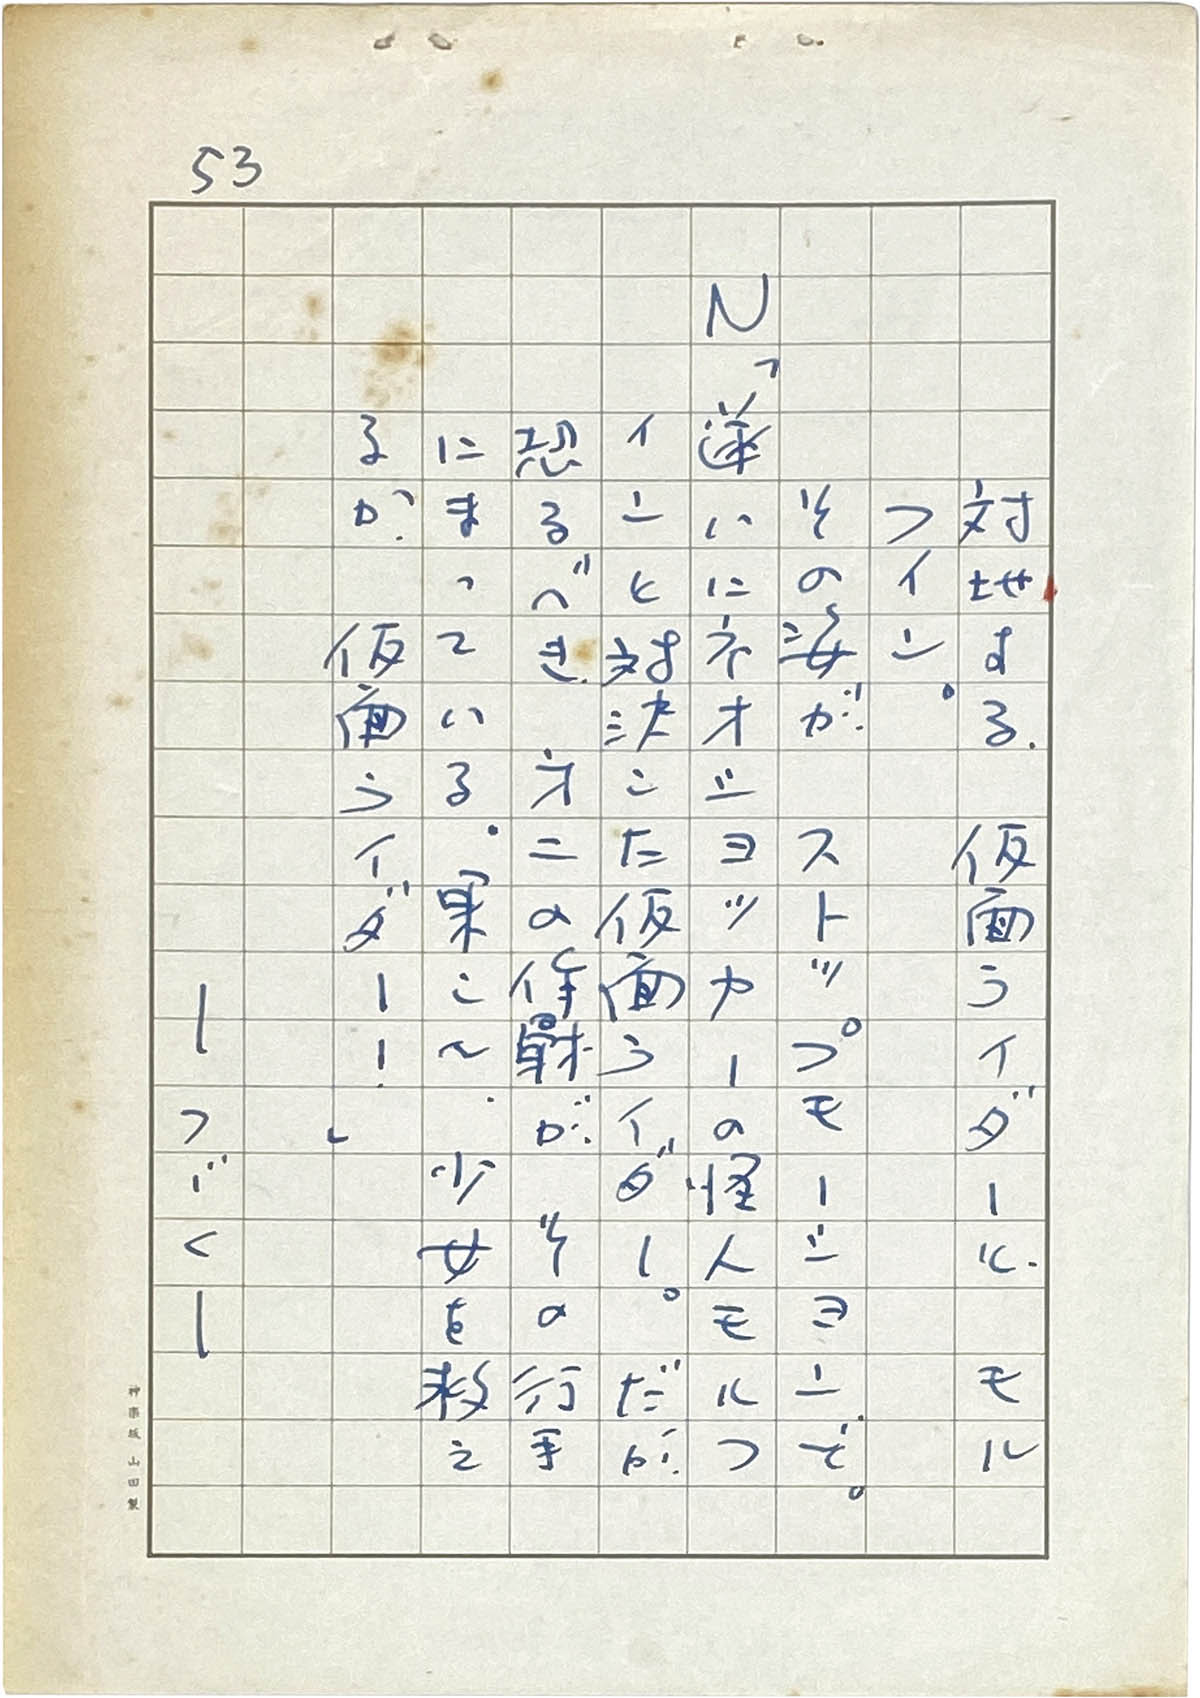 53
対せする、仮面ライダーと、モル
フイン。
その姿が、ストップモーションで。
N「遂いにネオショッカーの怪人モルフ
インと対決した仮面ライダー。だが、
恐るべき、才二の作戦が、その行手
にまっている。果して、少女を救え
るか、仮面ライダー!」
—つづく—
神楽坂 山田製